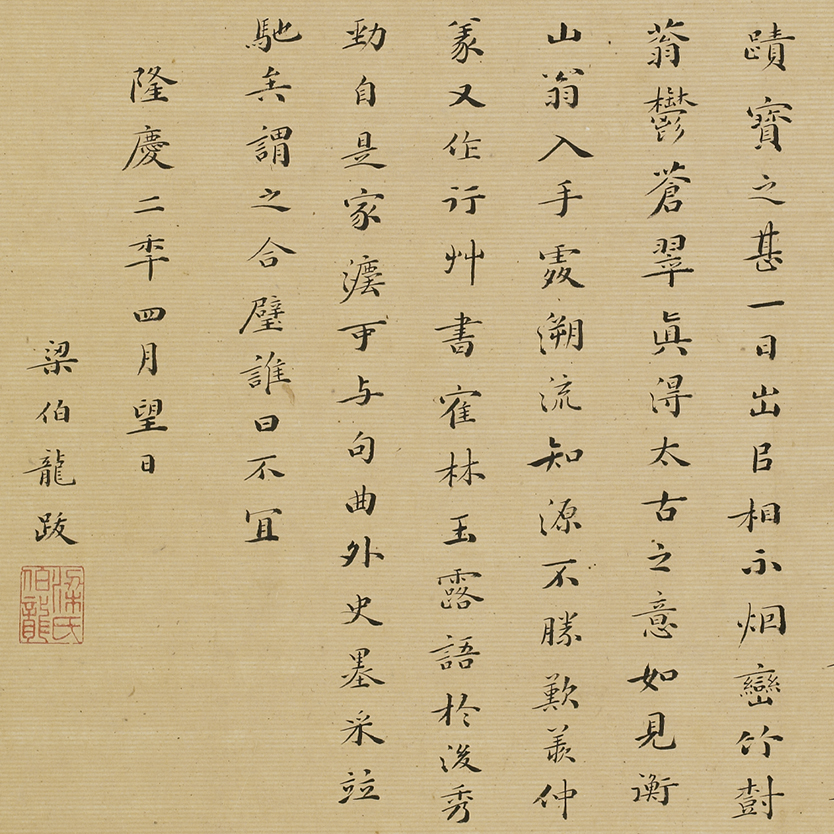 蹟寶之甚一日出㠯相示烟巒竹尌
蓊鬱蒼翠眞得太古之意如見衡
山翁入手覂溯流知源不勝歎羨仲
篆又作行艸書寉林玉露語於後秀
勁自是家灋可与句曲外史墨采竝
馳矣謂之合璧誰曰不冝
隆慶二秊四月望日
梁伯龍跋
梁氏伯龍